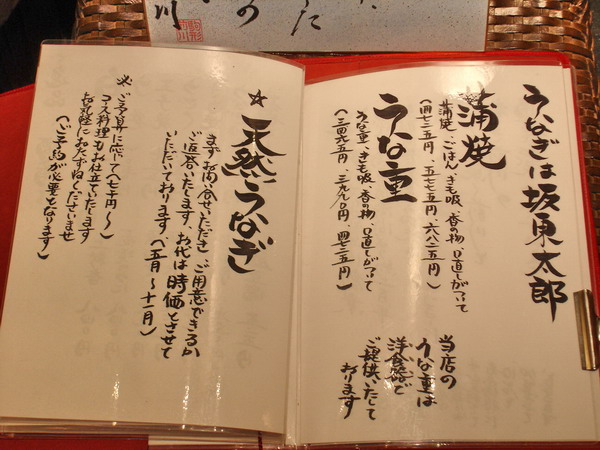 うなぎは坂東太郎
蒲焼
蒲焼、ごはん、きも吸、香の物、口直しがついて
(四七二五円、五七七五円、六八二五円)
うな重
うな重、きも吸、香の物、口直しがついて
(三四六五円、三九九〇円、四七二五円)
当店の
うな重は
洋食器で
ご提供いたして
おります
☆天然うなぎ
まずお問い合せいただき、ご用意できるか
ご返答いたします、お代は時価とさせて
いただいております(五月~十一月)
※ご予算に応じて(七千円~)
コース料理もお仕立ていたします
お気軽におたずねくださいませ
(ご予約が必要となります)